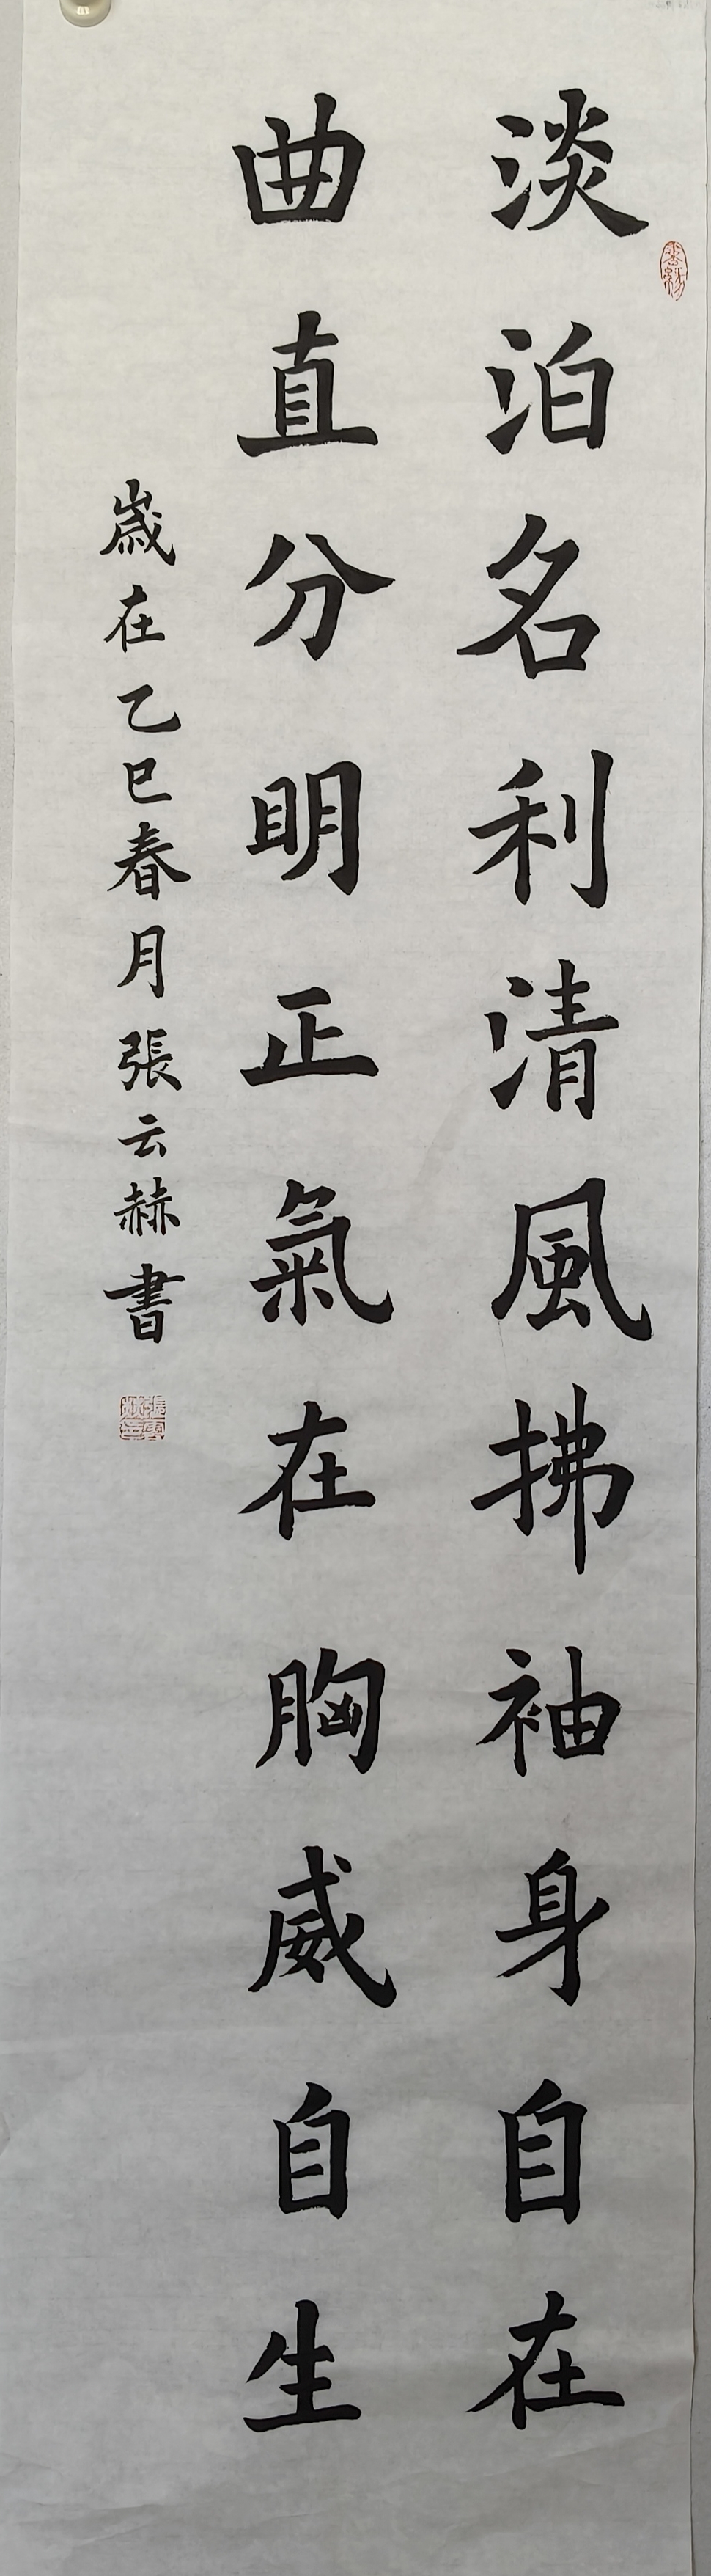 淡泊名利清風拂袖身自在
曲直分明正氣在胸威自生
歲在乙巳春月張云赫書